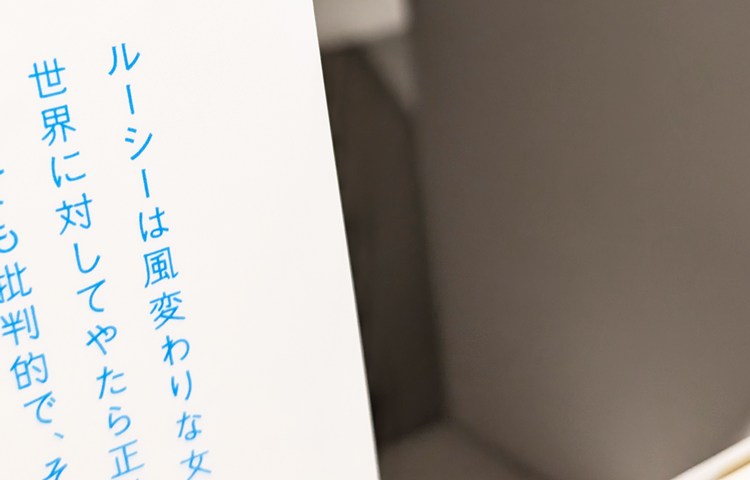 ルーシーは風変わりな女
世界に対してやたら正
も批判的で、そ